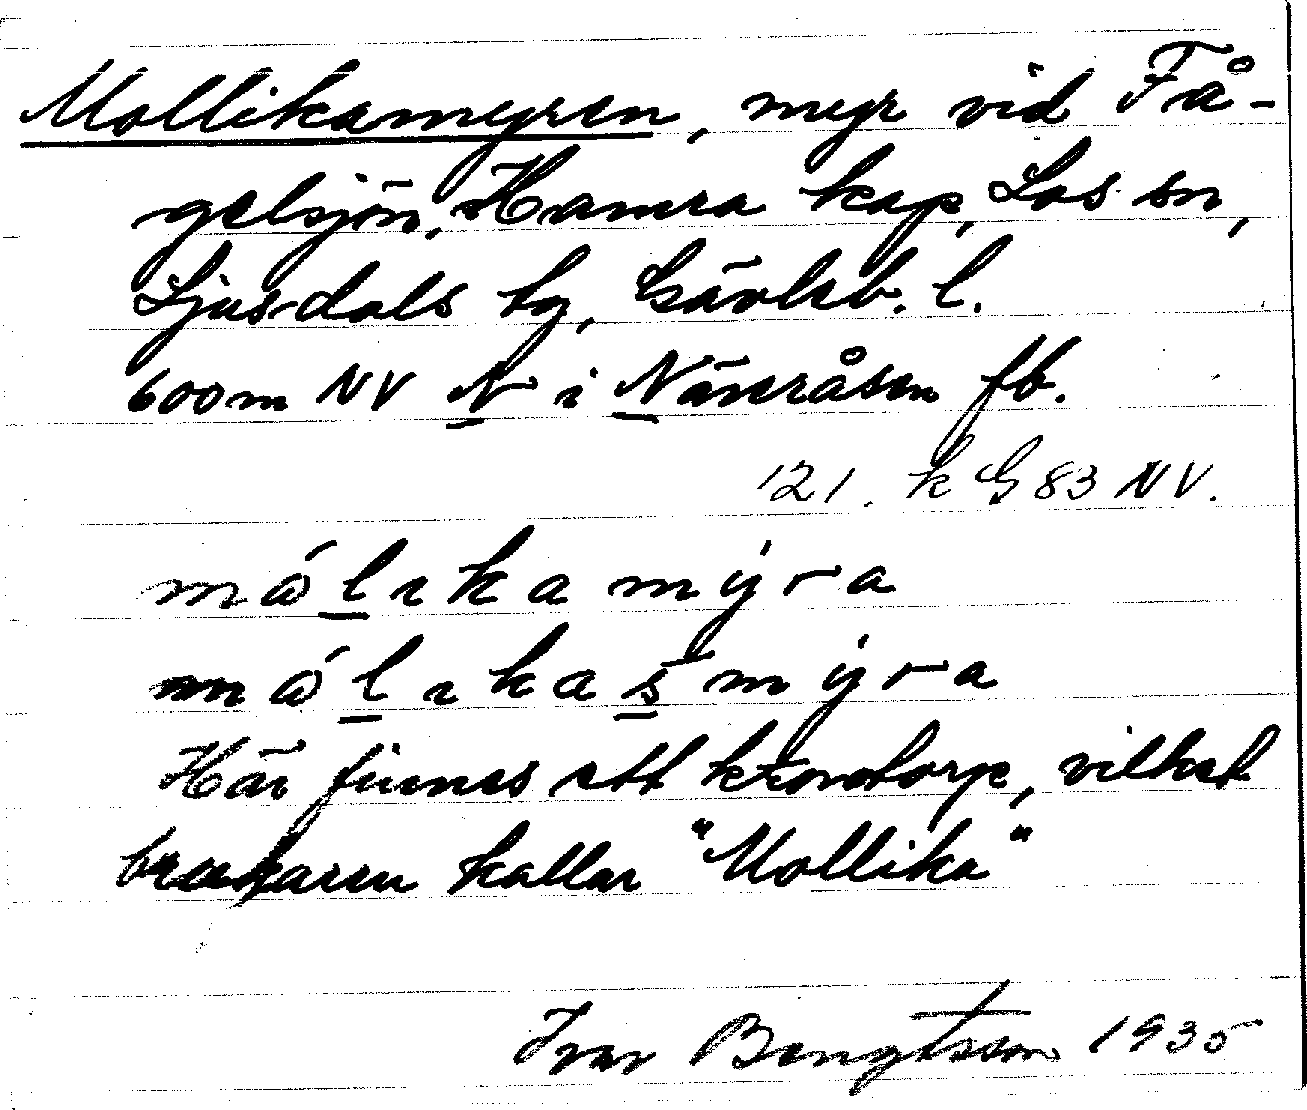 Mollikamyren, myr vid Få-
gelsjön, Hamra kap, Los sn,
Ljusdals tg, Gävleb. l.
600m NV N i Näveråsen fb.
121. k G 83 NV.
mǻlikamýra
mǻlikasmýra
Här finnes ett krontorp, vilket
brukaren kallar "Mollika"
Ivar Bengtsson 1935